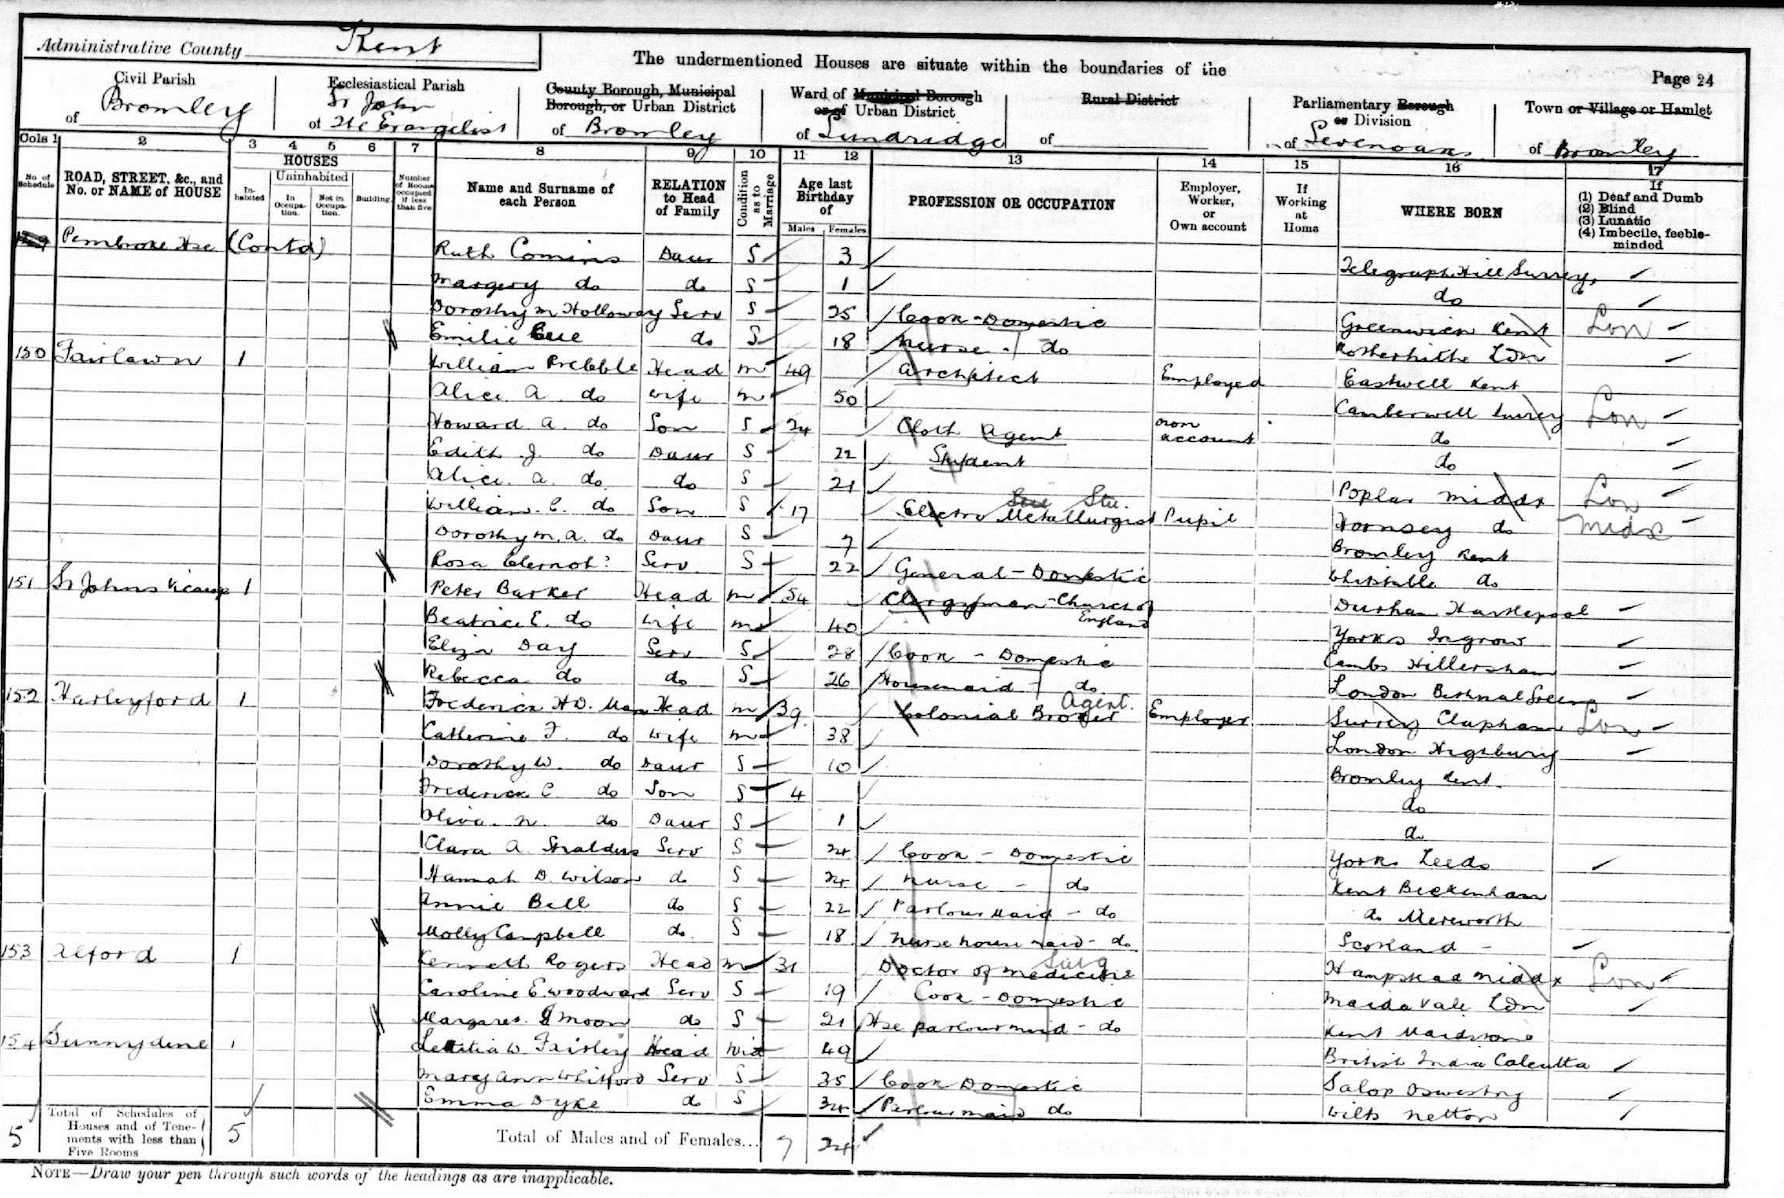 Administrative County Kent
The undermentioned Houses are situate within the boundaries of the
Page 24
Civil Parish of Bromley
Ecclesiastical Parish of St John The Evangelist
County Borough, Municipal Borough, or Urban District of Bromley
Ward of Municipal Borough or of Urban District of Sundridge
Rural District of
Parliamentary Borough or Division of Sevenoaks
Town or Village or Hamlet of Bromley
Cols 1 2 3 4 5 6 7 8 9 10 11 12 13 14 15 16 17
No. of Schedule
ROAD, STREET, &c., and No. or NAME of HOUSE
HOUSES
Inhabited
Uninhabited
In Occupation.
Not in Occupation.
Building.
Number of Rooms occupied if less than five
Name and Surname of each Person
RELATION to Head of Family
Condition as to Marriage
Age last Birthday of
Males Females
PROFESSION OR OCCUPATION
Employer, Worker, or Own account
If Working at Home
WHERE BORN
If (1) Deaf and Dumb (2) Blind (3) Lunatic (4) Imbecile, feeble-minded
Pembroke Hse (Contd) Ruth Comins Daur S 3 Telegraph Hill Surrey
Margery do do S 1 do
Dorothy M Holloway Serv S 25 Cook - Domestic Greenwich Kent Lon
Emilie do S 18 Nurse - do Rotherhithe Ldn
150 Fairlawn 1 William Prebble Head M 49 Architect Employed Eastwell Kent
Alice A. do Wife M 50 Camberwell Surrey Lon
Howard A. do Son S 24 Cloth Agent own account do
Edith J do Daur S 22 Student do
Alice A. do do S 21 Poplar Middx Lon
William E. do Son S 17 Electro Metallurgist Stu. Pupil Hornsey do Midx
Dorothy M. A. do Daur S 7 Bromley Kent
Rosa Serv S 22 General - Domestic Whitstable do
151 St Johns Vicarage 1 Peter Barker Head M 54 Clergyman - Church of England Durham Hartlepool
Beatrice E. do Wife M 40 Yorks Ingrow
Eliza Day Serv S 28 Cook - Domestic Cambs Hildersham
Rebecca do do S 26 Housemaid - do London Bethnal Green
152 Harleyford 1 Frederick H D. Man Head M 39 Colonial Broker Agent. Employer Surrey Clapham Lon
Catherine F. do Wife M 38 London Highbury
Dorothy W. do Daur S 10 Bromley Kent.
Frederick E do Son S 4 do
Oliva N. do Daur S 1 do
Clara A Serv S 24 Cook - Domestic Yorks Leeds
Hannah D. Wilson do S 24 Nurse - do Kent Beckenham
Annie Bell do S 22 Parlour Maid - do do Mereworth
Molly Campbell do S 18 Nurse house maid - do Scotland
153 Alford 1 Kenneth Rogers Head M 31 Doctor of Medicine Surg Hampstead Middx Lon
Caroline E. Woodward Serv S 19 Cook - Domestic Maida Vale Ldn
Margaret Moon do S 21 Hse parlourmaid - do Kent Maidstone
154 Sunnydene 1 Letitia W. Fairley Head Wid 49 British India Calcutta
Mary Ann Whitford Serv S 35 Cook Domestic Salop Oswestry
Emma Dyke do S 34 Parlourmaid do Wilts Netton
5 Total of Schedules of Houses and of Tenements with less than Five Rooms 5 Total of Males and of Females... 7 24
NOTE—Draw your pen through such words of the headings as are inapplicable.